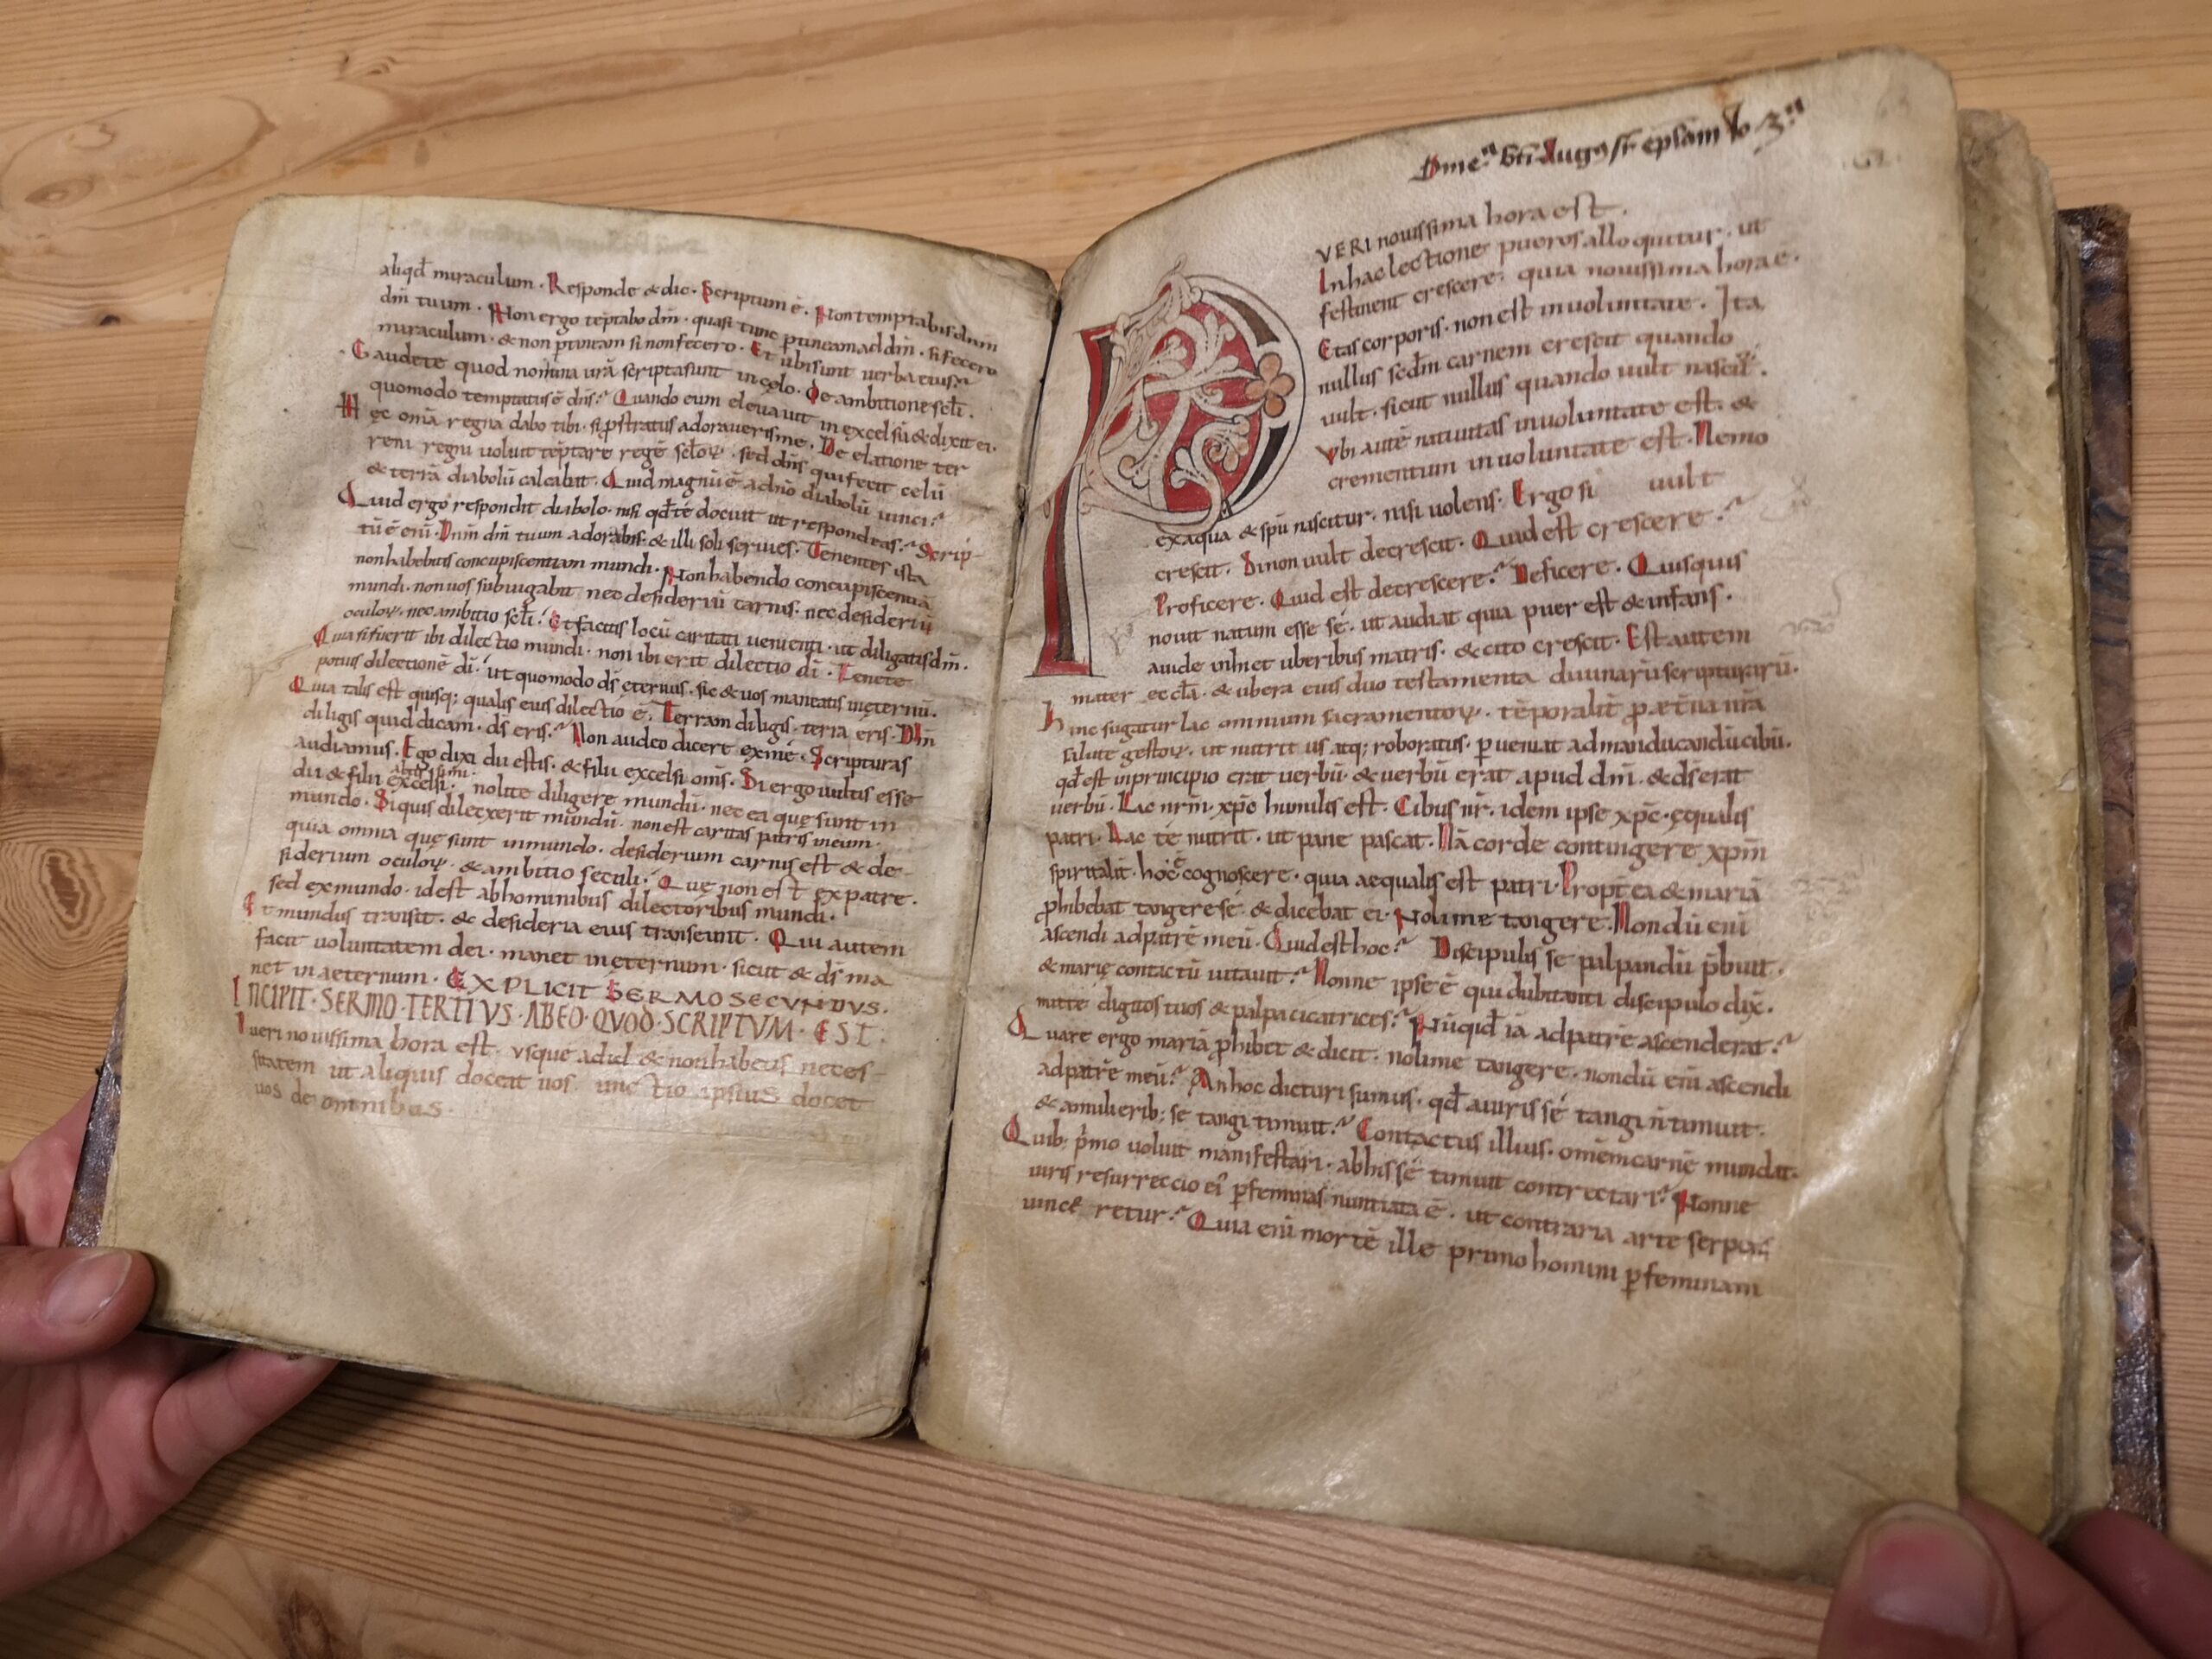 aliqd̄ miraculum. Responde & dic. Scriptum ē. Non temptabis dnm
dm̄ tuum. Non ergo tēptabo dm̄. quasi tunc ptineam ad dm̄. si fecero
miraculum. & non ptineam si non fecero. Et ubi sunt verba eius?
Gaudete quod nomina ur̄a scripta sunt in cęlo. De ambitione sc̄li.
quomodo temptatus ē dn̄s? Quando eum elevavit in excelsū & dixit ei.
Hęc om̄a regna dabo tibi. si pstratus adoraveris me. De elatione ter
reni regni voluit tēptare regē sc̄loꝝ. sed dn̄s qui fecit celū
& terrā diabolū calcabat. Quid magnū ē a dn̄o diabolū vinci?
Quid ergo respondit diabolo. nisi qd̄ te docuit ut respondeas? Scrip-
tū ē eni. Dnm̄ dm̄ tuum adorabis. & illi soli servies. Tenentes ista
non habebitis concupiscentiam mundi. Non habendo concupiscentiā
mundi. non vos subiugabit nec desideriū carnis. nec desideriū
oculoꝝ. nec ambitio sc̄li. Et facitis locū caritati venienti. ut diligatis dm̄.
Quia si fuerit ibi dilectio mundi. non ibi erit dilectio dī. Tenete
potius dilectionē dī. ut quomodo ds̄ ęternus. sic & vos maneatis in ęternū.
Quia talis est quisq; qualis eius dilectio ē. Terram diligis. terra eris. Dm̄
diligis quid dicam. ds̄ eris? Non audeo dicere ex me. Scripturas
audiamus. Ego dixi dii estis. & filii excelsi om̄s. Si ergo vultis esse
dii & filii excelsi. nolite diligere mundū. nec ea que sunt in
mundo. Si quis dilexerit mundū. non est caritas patris in eum.
quia omnia quę sunt in mundo. desiderium carnis est & de-
siderium oculoꝝ. & ambitio seculi. Quę non est ex patre.
sed ex mundo. id est ab hominibus dilectoribus mundi.
Et mundus transit. & desideria eius transeunt. Qui autem
facit voluntatem dei. manet in ęternum. sicut & ds̄ ma
net in aeternum. EXPLICIT SERMO SECUNDVS.
INCIPIT. SERMO. TERTIVS. AB EO. QUOD. SCRIPTVM. EST.
Pueri novissima hora est. usque ad id & non habetis neces-
sitatem ut aliquis doceat vos. unctio ipsius docet
vos de omnibus.
VERI novissima hora est.
In hac lectione pueros alloquitur. ut
festinent crescere. quia novissima hora ē.
Etas corporis. non est in voluntate. Ita
nullus sedm̄ carnem crescit quando
vult. sicut nullus quando vult nascit̄.
Ubi autē nativitas in voluntate est. &
crementum in voluntate est. Nemo
ex aqua & spū nascitur. nisi volens. Ergo si vult
crescit. Si non vult decrescit. Quid est crescere?
Proficere. Quid est decrescere? Deficere. Quisquis
novit natum esse sé. ut audiat quia puer est & infans.
avide inhiet uberibus matris. & cito crescit. Est autem
mater eccla. & ubera eius duo testamenta divinarū scripturarū.
Hinc sugatur lac omnium sacramentoꝝ. tēporalit̄ p ęt̄na nr̄a
salute gestoꝝ. ut nutritus atq; roboratus. pveniat ad manducandū cibū.
qd̄ est in principio erat verbū. & verbū erat apud dm̄. & ds̄ erat
verbū. Lac nrm̄. xpc̄ humilis est. Cibus nr̄. idem ipse xpc̄. ęqualis
patri. Lac te nutrit. ut pane pascat. Nā corde contingere xpm̄
spiritalit̄. hoc ē cognoscere. quia aequalis est patri. Propt̄ea & mariā
phibebat tangere sé. & dicebat ei. Noli me tangere. Nondū eni
ascendi ad patrē meū. Quid est hoc? Discipulis se palpandū p̄buit.
& marię contactū vitavit? Nonne ipse ē qui dubitanti discipulo dix̄.
mitte digitos tuos & palpa cicatrices? Nūqid ia ad patrē ascenderat?
Quare ergo mariā phibet & dicit. noli me tangere. nondū eni ascendi
ad patrē meū? An hoc dicturi sumus. qd̄ a viris sé tangi n̄ timuit.
& a mulierib; se tangi timuit? Contactus illius. omēm carnē mundat.
Quib; p̄mo voluit manifestari. ab his sé timuit contrectari? Nonne
viris resurreccio ei' p feminas nuntiata ē. ut contraria arte serpens
vinceretur? Quia eni mortē ille primo homini p feminam